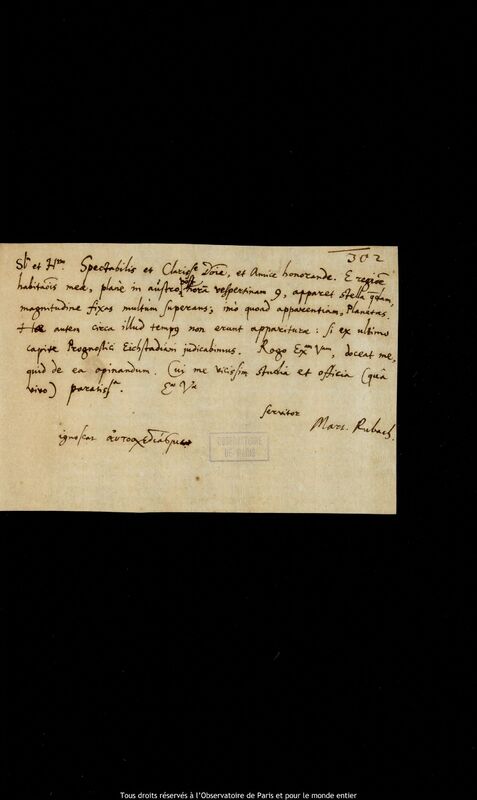 302
S. et H. Spectabilis et Clariss. Dōīe, et Amice honorande. E regiōe
habitaōis meæ, plane in austro, post horā vespertinam 9, apparet stella qdam,
magnitudine fixas multum superans; imò quoad apparentiam, Planetas.
Hæ autem circa illud temp9 non erunt apparituræ: si ex ultimo
capite Prognostic Eichstadiani judicabimus. Rogo Exm Vam, doceat me,
quid de ea opinandum. Cui me vicissim studia et officia (quā
vivo) paratiss.
servitor
Mart. Rubach.
ignoscas
OBSERVATOIRE
DE PARIS
Tous droits réservés à l'Observatoire de Paris et pour le monde entier